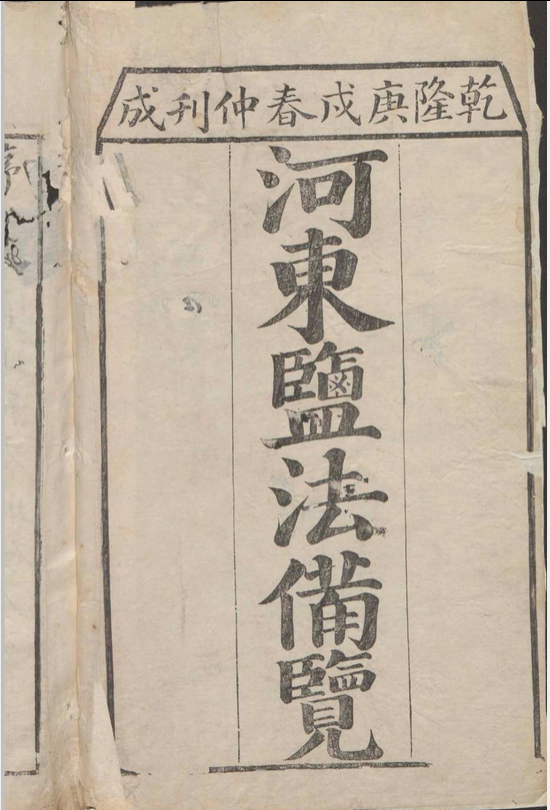 乾隆庚戌春仲刋成
河東鹽法備覽